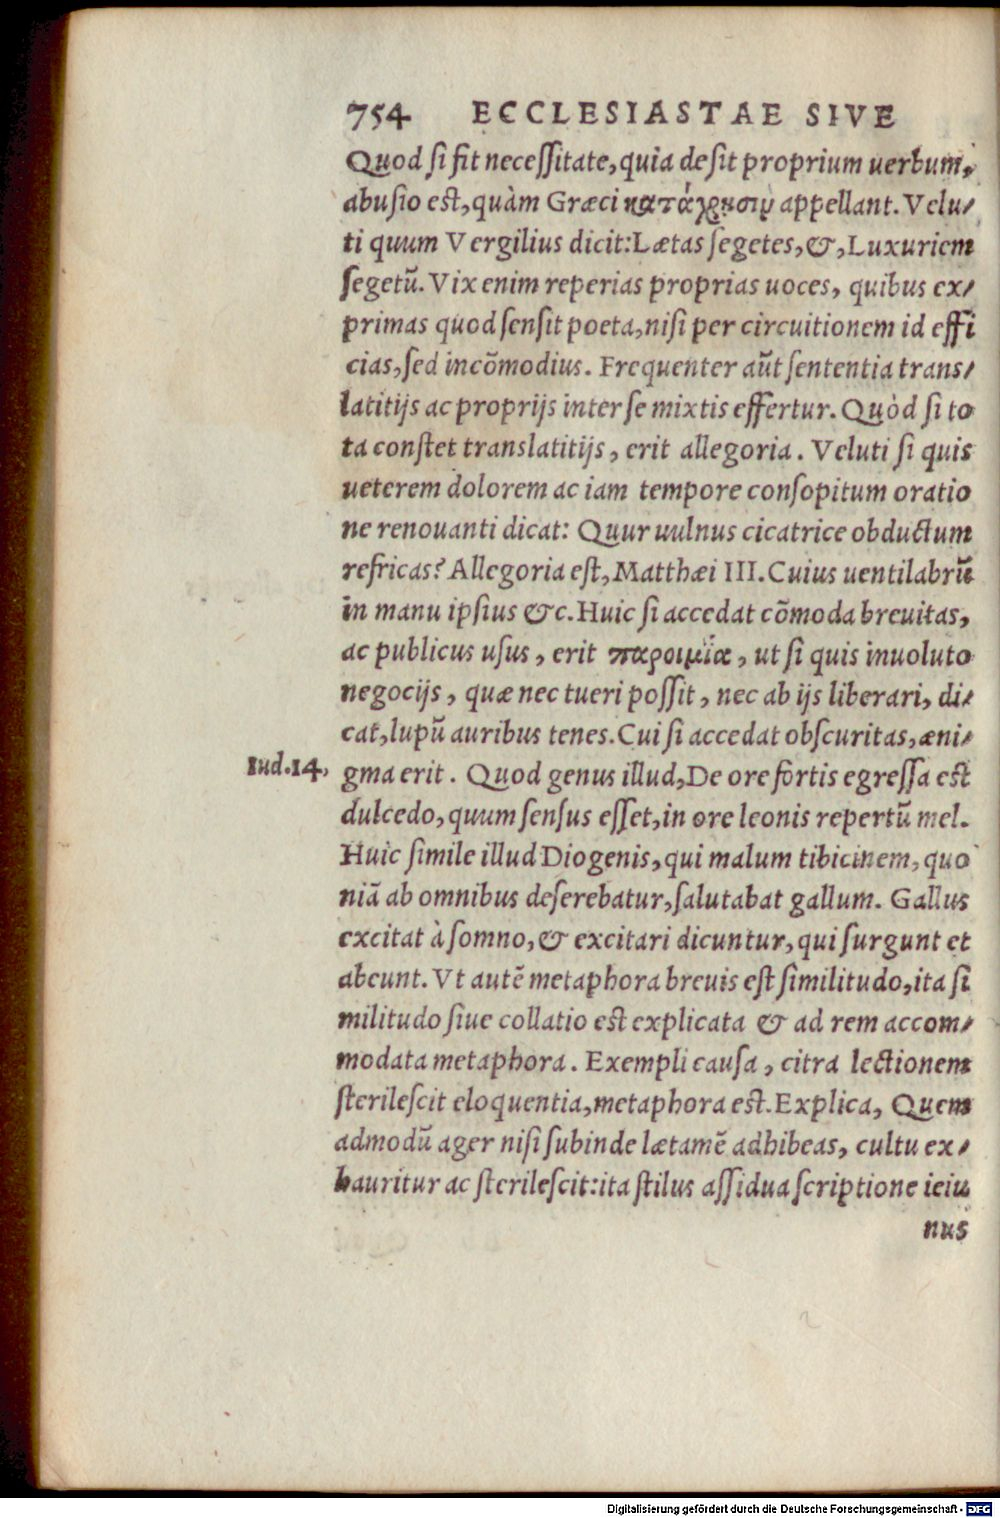 754 ECCLESIASTAE SIVE
Quod si fit necessitate, quia desit proprium uerbum,
abusio est, quàm Græci κατάχρησιν appellant. Velu/
ti quum Vergilius dicit: Lætas segetes, &, Luxuriem
segetū. Vix enim reperias proprias uoces, quibus ex/
primas quod sensit poeta, nisi per circuitionem id effi
cias, sed incōmodius. Frequenter aūt sententia trans/
latitijs ac proprijs inter se mixtis effertur. Quòd si to
ta constet translatitijs, erit allegoria. Veluti si quis
ueterem dolorem ac iam tempore consopitum oratio
ne renouanti dicat: Quur uulnus cicatrice obductum
refricas? Allegoria est, Matthæi III. Cuius uentilabrū
in manu ipsius &c. Huic si accedat cōmoda breuitas,
ac publicus usus, erit παροιμία, ut si quis inuoluto
negocijs, quæ nec tueri possit, nec ab ijs liberari, di/
cat, lupū auribus tenes. Cui si accedat obscuritas, æni/
Iud.14, gma erit. Quod genus illud, De ore fortis egressa est
dulcedo, quum sensus esset, in ore leonis repertū mel.
Huic simile illud Diogenis, qui malum tibicinem, quo
niā ab omnibus deserebatur, salutabat gallum. Gallus
excitat à somno, & excitari dicuntur, qui surgunt et
abeunt. Vt autē metaphora breuis est similitudo, ita si
militudo siue collatio est explicata & ad rem accom/
modata metaphora. Exempli causa, citra lectionem
sterilescit eloquentia, metaphora est. Explica, Quem
admodū ager nisi subinde lætamē adhibeas, cultu ex/
hauritur ac sterilescit: ita stilus assidua scriptione ieiu
nus
Digitalisierung gefördert durch die Deutsche Forschungsgemeinschaft - DFG